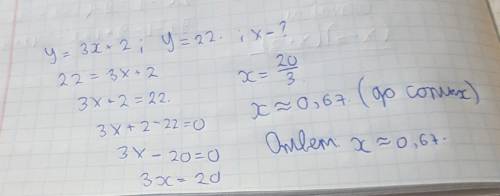 y = 3x + 2 ; y = 22. ; x - ?
22 = 3x + 2
3x + 2 = 22.
3x + 2 - 22 = 0
3x - 20 = 0
3x = 20
x = 20/3
x ≈ 0,67. (до сотых)
Ответ x ≈ 0,67.